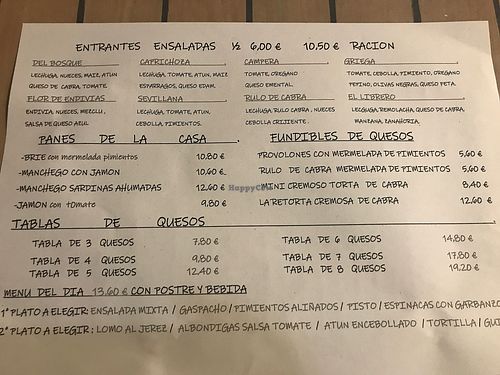 ENTRANTES ENSALADAS ½ 6,00 € 10,50 € RACION
DEL BOSQUE CAPRICHOZA CAMPERA GRIEGA
LECHUGA, NUECES, MAIZ, ATUN LECHUGA, TOMATE, ATUN, MAIZ TOMATE, OREGANO TOMATE, CEBOLLA, PIMIENTO, OREGANO
QUESO DE CABRA, TOMATE ESPARRAGOS, QUESO EDAM. QUESO EMENTAL PEPINO, OLIVAS NEGRAS, QUESO FETA.
FLOR DE ENDIVIAS SEVILLANA RULO DE CABRA EL LIBRERO
ENDIVIA, NUECES, MEZCLU, LECHUGA, TOMATE, ATUN, LECHUGA, RULO CABRA, NUECES LECHUGA, REMOLACHA, QUESO DE CABRA,
SALSA DE QUESO AZUL CEBOLLA, PIMIENTOS. CEBOLLA CRIJIENTE. MANZANA, ZANAHORIA,
PANES DE LA CASA. FUNDIBLES DE QUESOS
-BRIE con mermelada pimientos 10,80 € PROVOLONE CON MERMELADA DE PIMIENTOS 5,60 €
-MANCHEGO CON JAMON 10,60 € RULO DE CABRA MERMELADA DE PIMIENTOS 5,60 €
-MANCHEGO SARDINAS AHUMADAS 12,60 € MINI CREMOSO TORTA DE CABRA 8,40 €
-JAMON con tomate 9,80 € LA RETORTA CREMOSA DE CABRA 12,60 €
HappyCow
TABLAS DE QUESOS
TABLA DE 3 QUESOS 7,80 € TABLA DE 6 QUESOS 14,80 €
TABLA DE 4 QUESOS 9,80 € TABLA DE 7 QUESOS 17,80 €
TABLA DE 5 QUESOS 12,40 € TABLA DE 8 QUESOS 19,20 €
MENU DEL DIA 13,60 € CON POSTRE Y BEBIDA
1º PLATO A ELEGIR: ENSALADA MIXTA / GASPACHO / PIMIENTOS ALIÑADOS / PISTO / ESPINACAS CON GARBANZO
2º PLATO A ELEGIR: LOMO AL JEREZ / ALBONDIGAS SALSA TOMATE / ATUN ENCEBOLLADO / TORTILLA / GUI